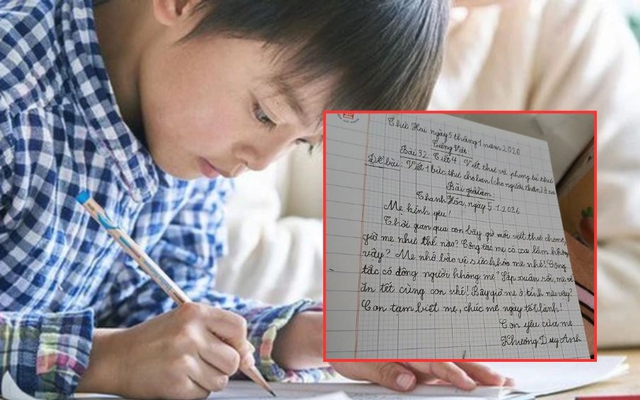 Thứ Hai ngày 5 tháng 1 năm 2026
Tiếng Việt
Bài 32: Tiết 4: Viết thư và phong bì thư
Đề bài: Viết 1 bức thư cho bạn (cho người thân) ở xa
Bài làm
Thanh Hóa, ngày 5.1.2026
Mẹ kính yêu!
Thời gian qua con bây giờ mới viết thư cho mẹ,
giờ mẹ như thế nào? Công tác mẹ có xa lắm không
vậy? Mẹ nhớ bảo vệ sức khỏe mẹ nhé! Công
tác có đông người không mẹ? Sắp xuân rồi, mẹ về
ăn tết cùng con nhé! Bây giờ mẹ ở tỉnh nào vậy?
Con tạm biệt mẹ, chúc mẹ ngày tốt lành!
Con yêu của mẹ
Khương Duy Anh